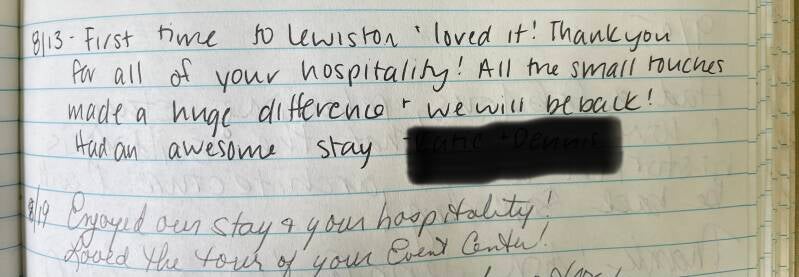 8/13 - First time to Lewiston + loved it! Thank you
for all of your hospitality! All the small touches
made a huge difference + we will be back!
Had an awesome stay
8/19 Enjoyed our stay & your hospitality!
Loved the tour of your Event Center!